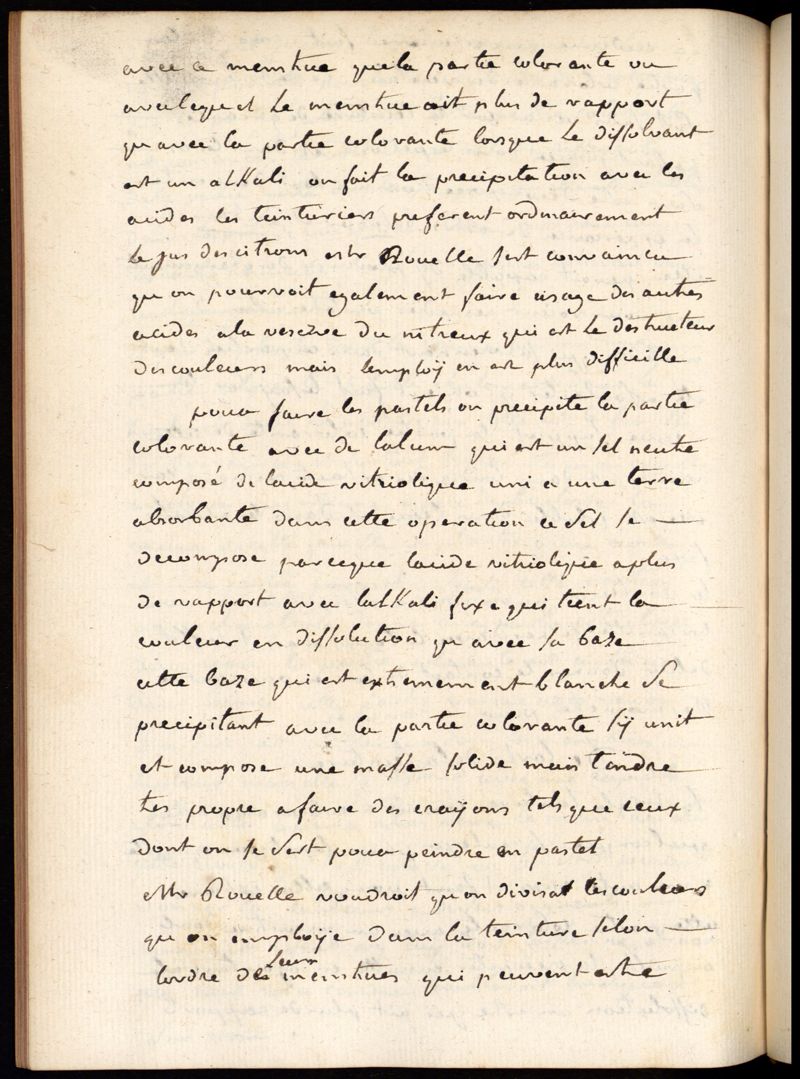 avec ce menstrue que la partie colorante ou
avec lequel le menstrue ait plus de rapport
qu avec la partie colorante lorsque le dissolvant
est un alKali on fait la precipitation avec les
acides les teinturiers preferent ordinairement
le jus des citrons Mr Rouelle sest convaincu
qu on pourroit egalement faire usage des autres
acides a la reserve du nitreux qui est le destructeur
des couleurs mais lemploÿ en est plus difficille
pour faire les pastels on precipite la partie
colorante avec de lalun qui est un sel neutre
composé de lacide vitriolique uni a une terre
absorbante dans cette operation ce sel se —
decompose parceque lacide vitriolique a plus
de rapport avec lalKali fixe qui tient la
couleur en dissolution qu avec sa baze
cette baze qui est extremement blanche se
precipitant avec la partie colorante sÿ unit
et compose une masse solide mais tendre
tres propre a faire des craÿons tels que ceux
dont on se sert pour peindre en pastel
Mr Rouelle voudroit qu on divisat les couleurs
qu on emploÿe dans la teinture selon —
lordre de leurs menstrues qui peuvent estre